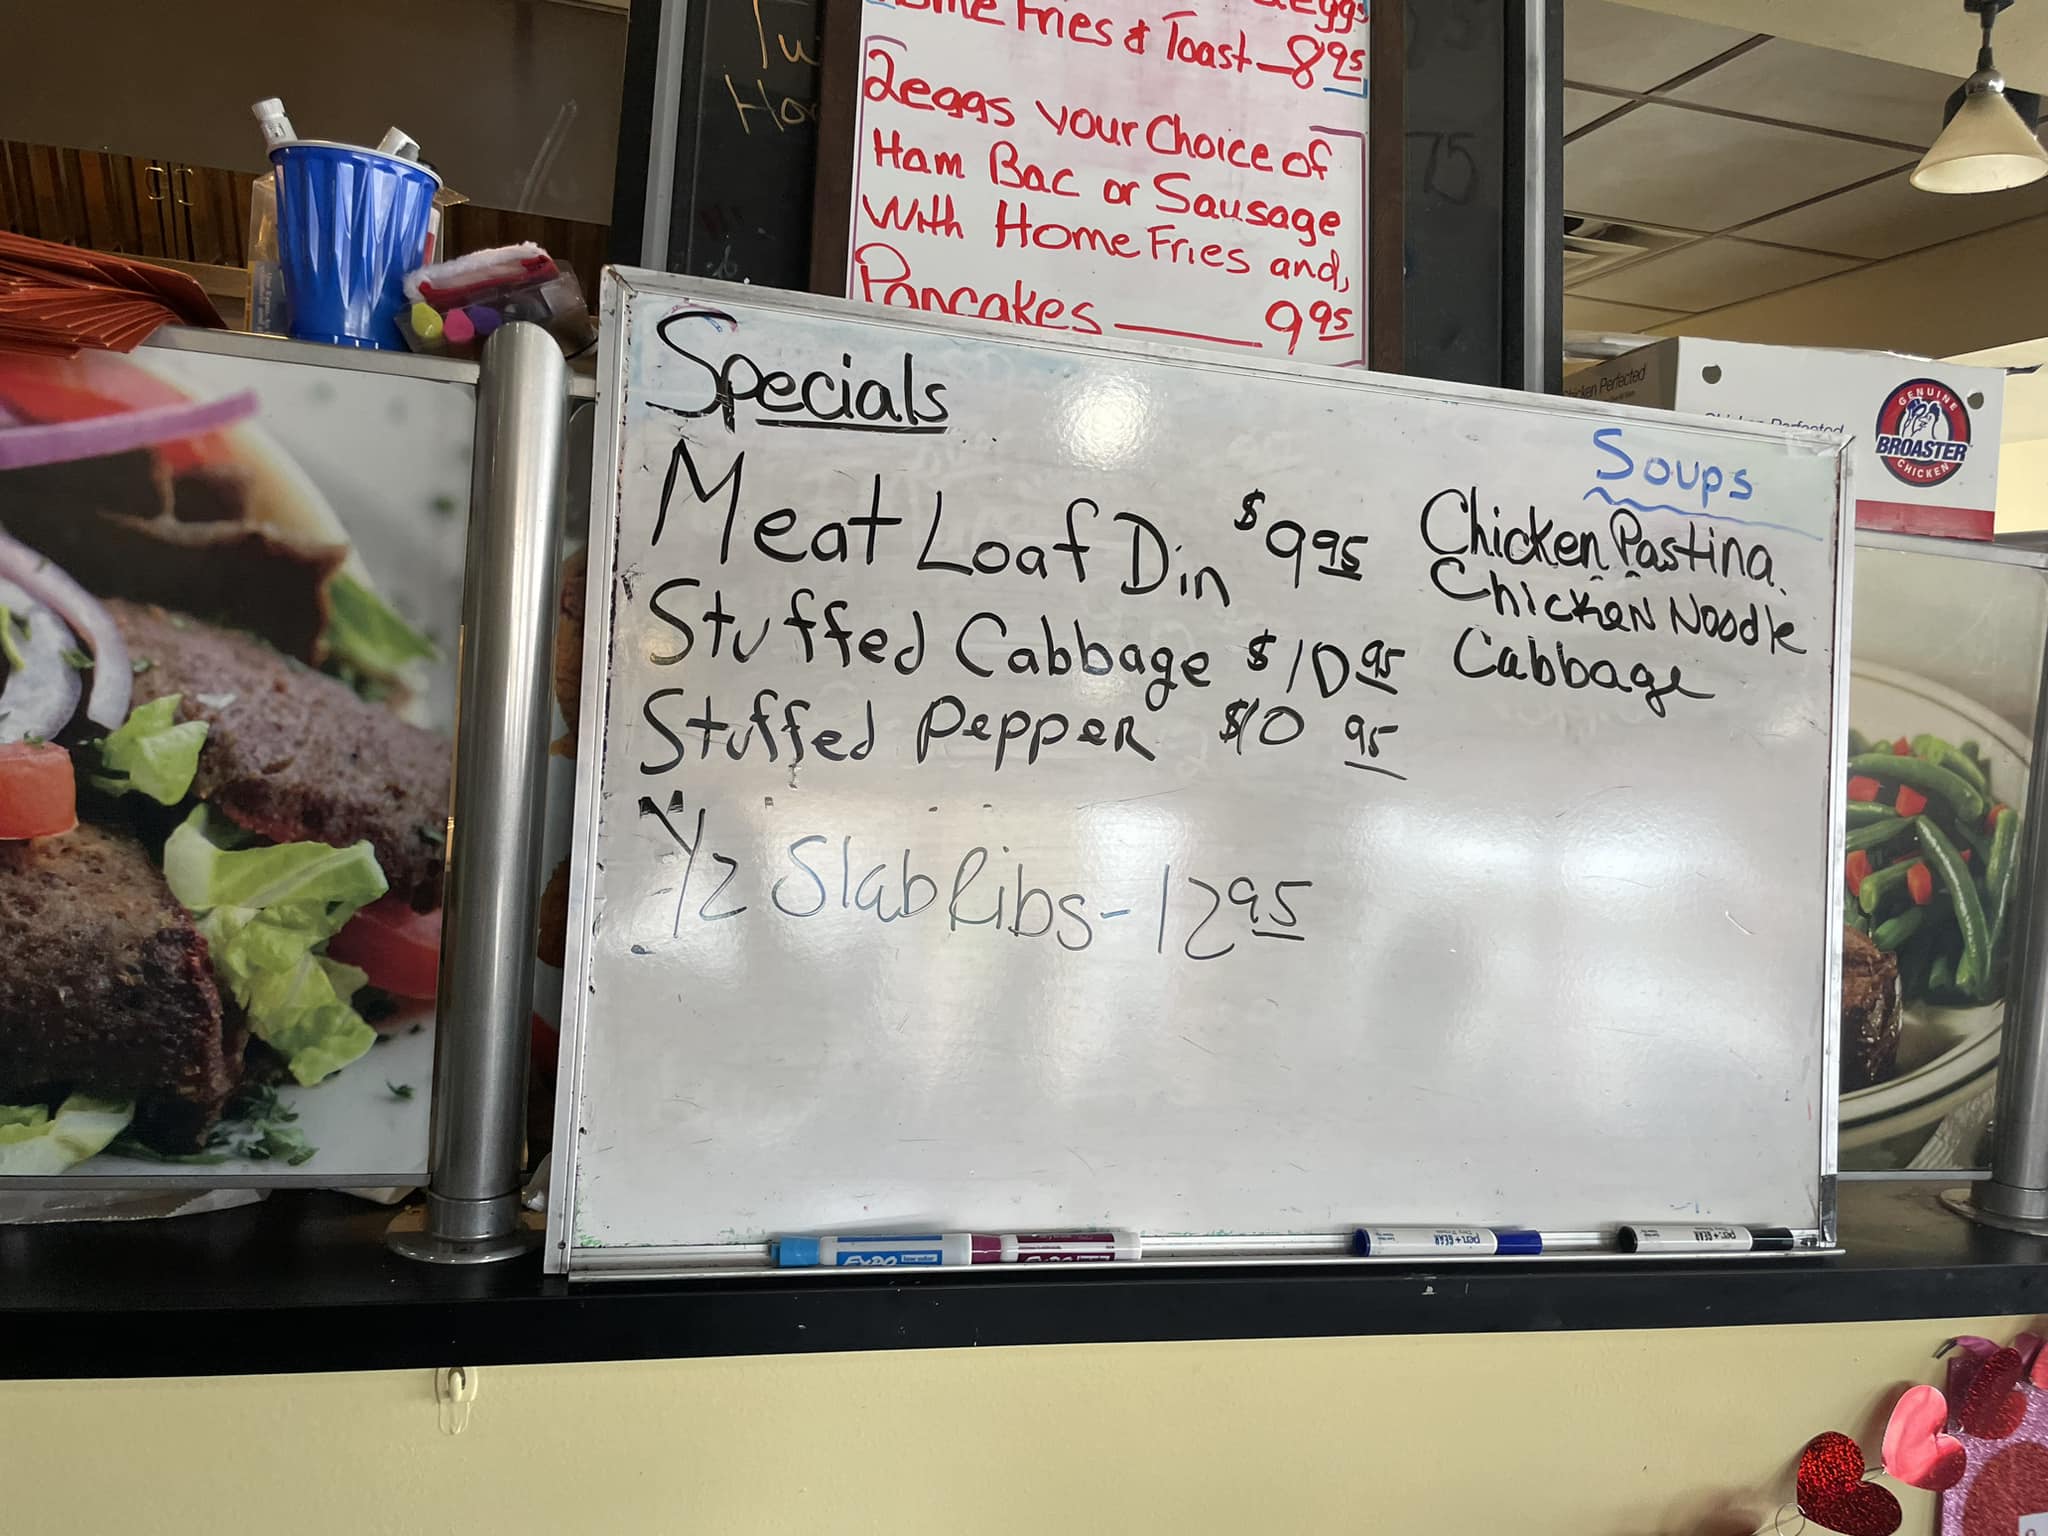 Fries & Toast - 8 95
2 eggs your Choice of
Ham Bac or Sausage
With Home Fries and,
Pancakes 9 95
Specials
Meat Loaf Din $9 95
Stuffed Cabbage $10 95
Stuffed Pepper $10 95
1/2 Slab Ribs - 12 95
Soups
Chicken Pastina
Chicken Noodle
Cabbage
Chicken Perfected
GENUINE
BROASTER
CHICKEN
75
EXPO
pen+GEAR
pen+GEAR